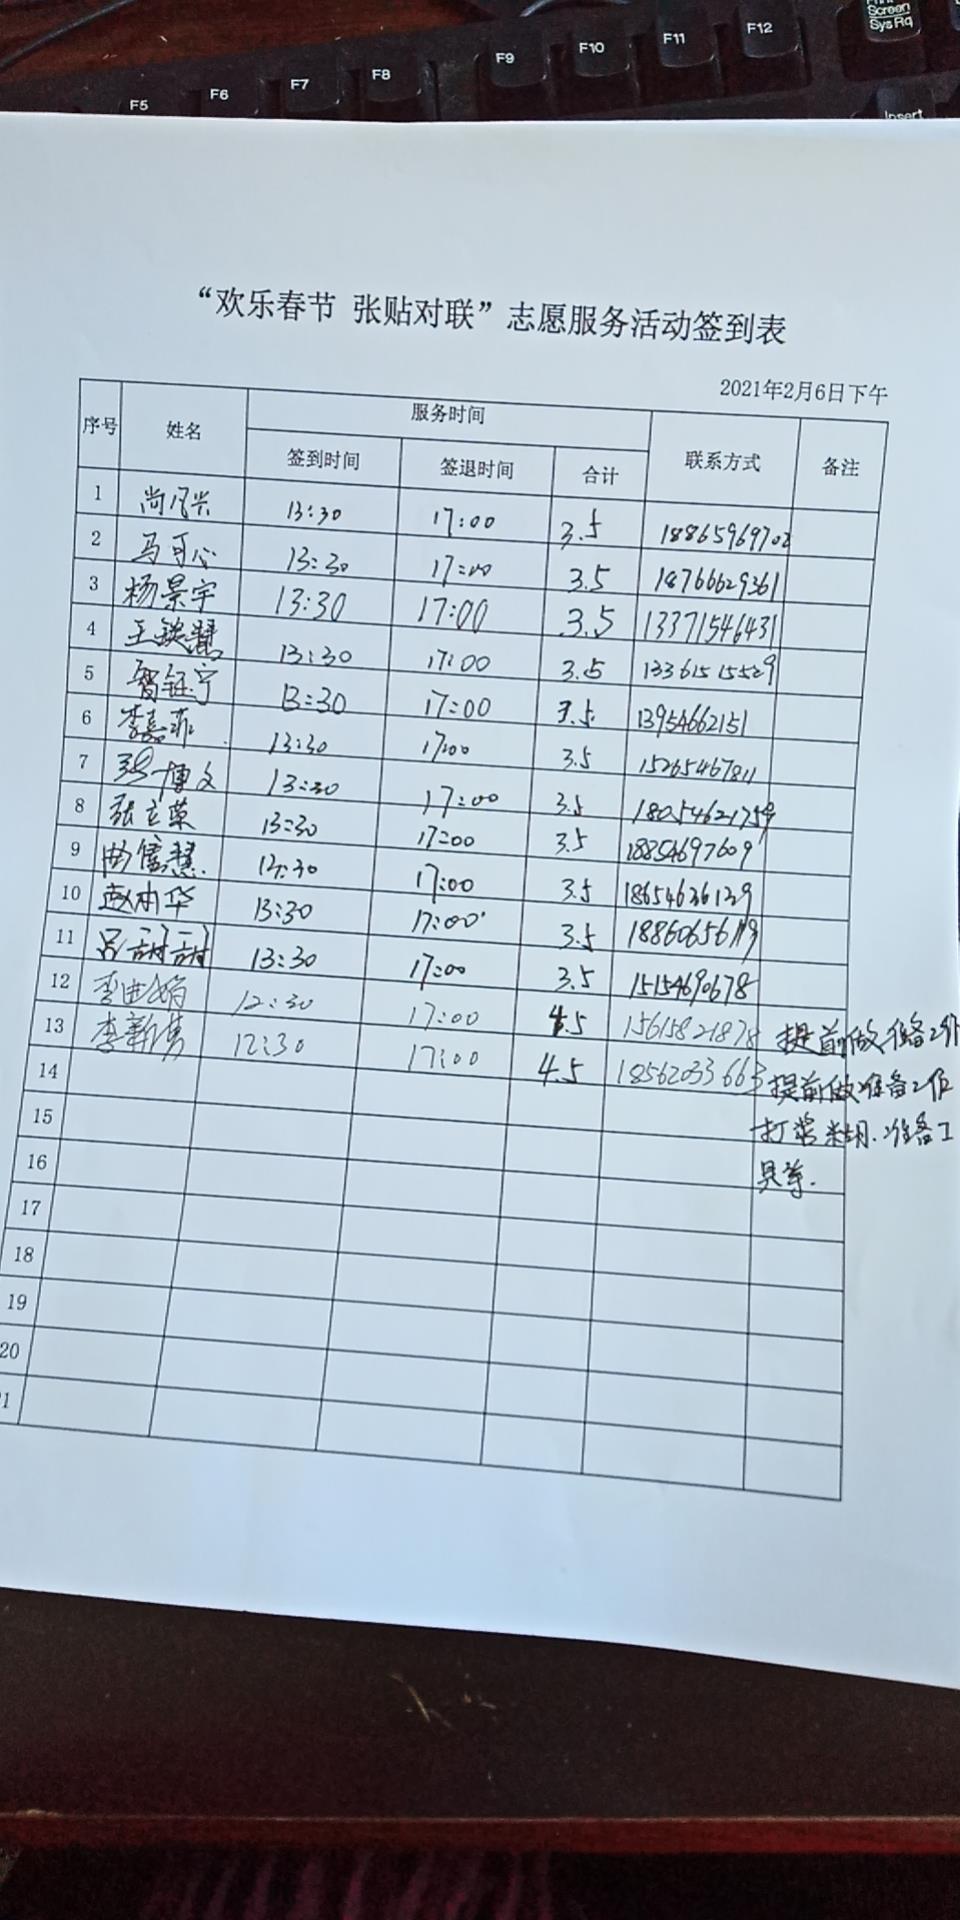 Print Screen SysRq
F5 F6 F7 F8 F9 F10 F11 F12
Insert
“欢乐春节 张贴对联”志愿服务活动签到表
2021年2月6日下午
序号 姓名 服务时间 联系方式 备注
签到时间 签退时间 合计
1 尚凡兴 13:30 17:00 3.5
2 马可心 13:30 17:00 3.5 18766629361
3 杨景宇 13:30 17:00 3.5 13371546431
4 13:30 17:00 3.5 13361515529
5 13:30 17:00 3.5 13954662151
6 李嘉菲 13:30 17:00 3.5 15265467811
7 张博文 13:30 17:00 3.5 18054621759
8 张立荣 13:30 17:00 3.5 18854697609
9 13:30 17:00 3.5 18654636129
10 13:30 17:00 3.5
11 吕甜甜 13:30 17:00 3.5 15154690678
12 12:30 17:00 4.5 15615821878 提前做准备工作
13 12:30 17:00 4.5 18562033663 提前做准备工作
14
15 打浆糊.准备工
16 具等.
17
18
19
20
1